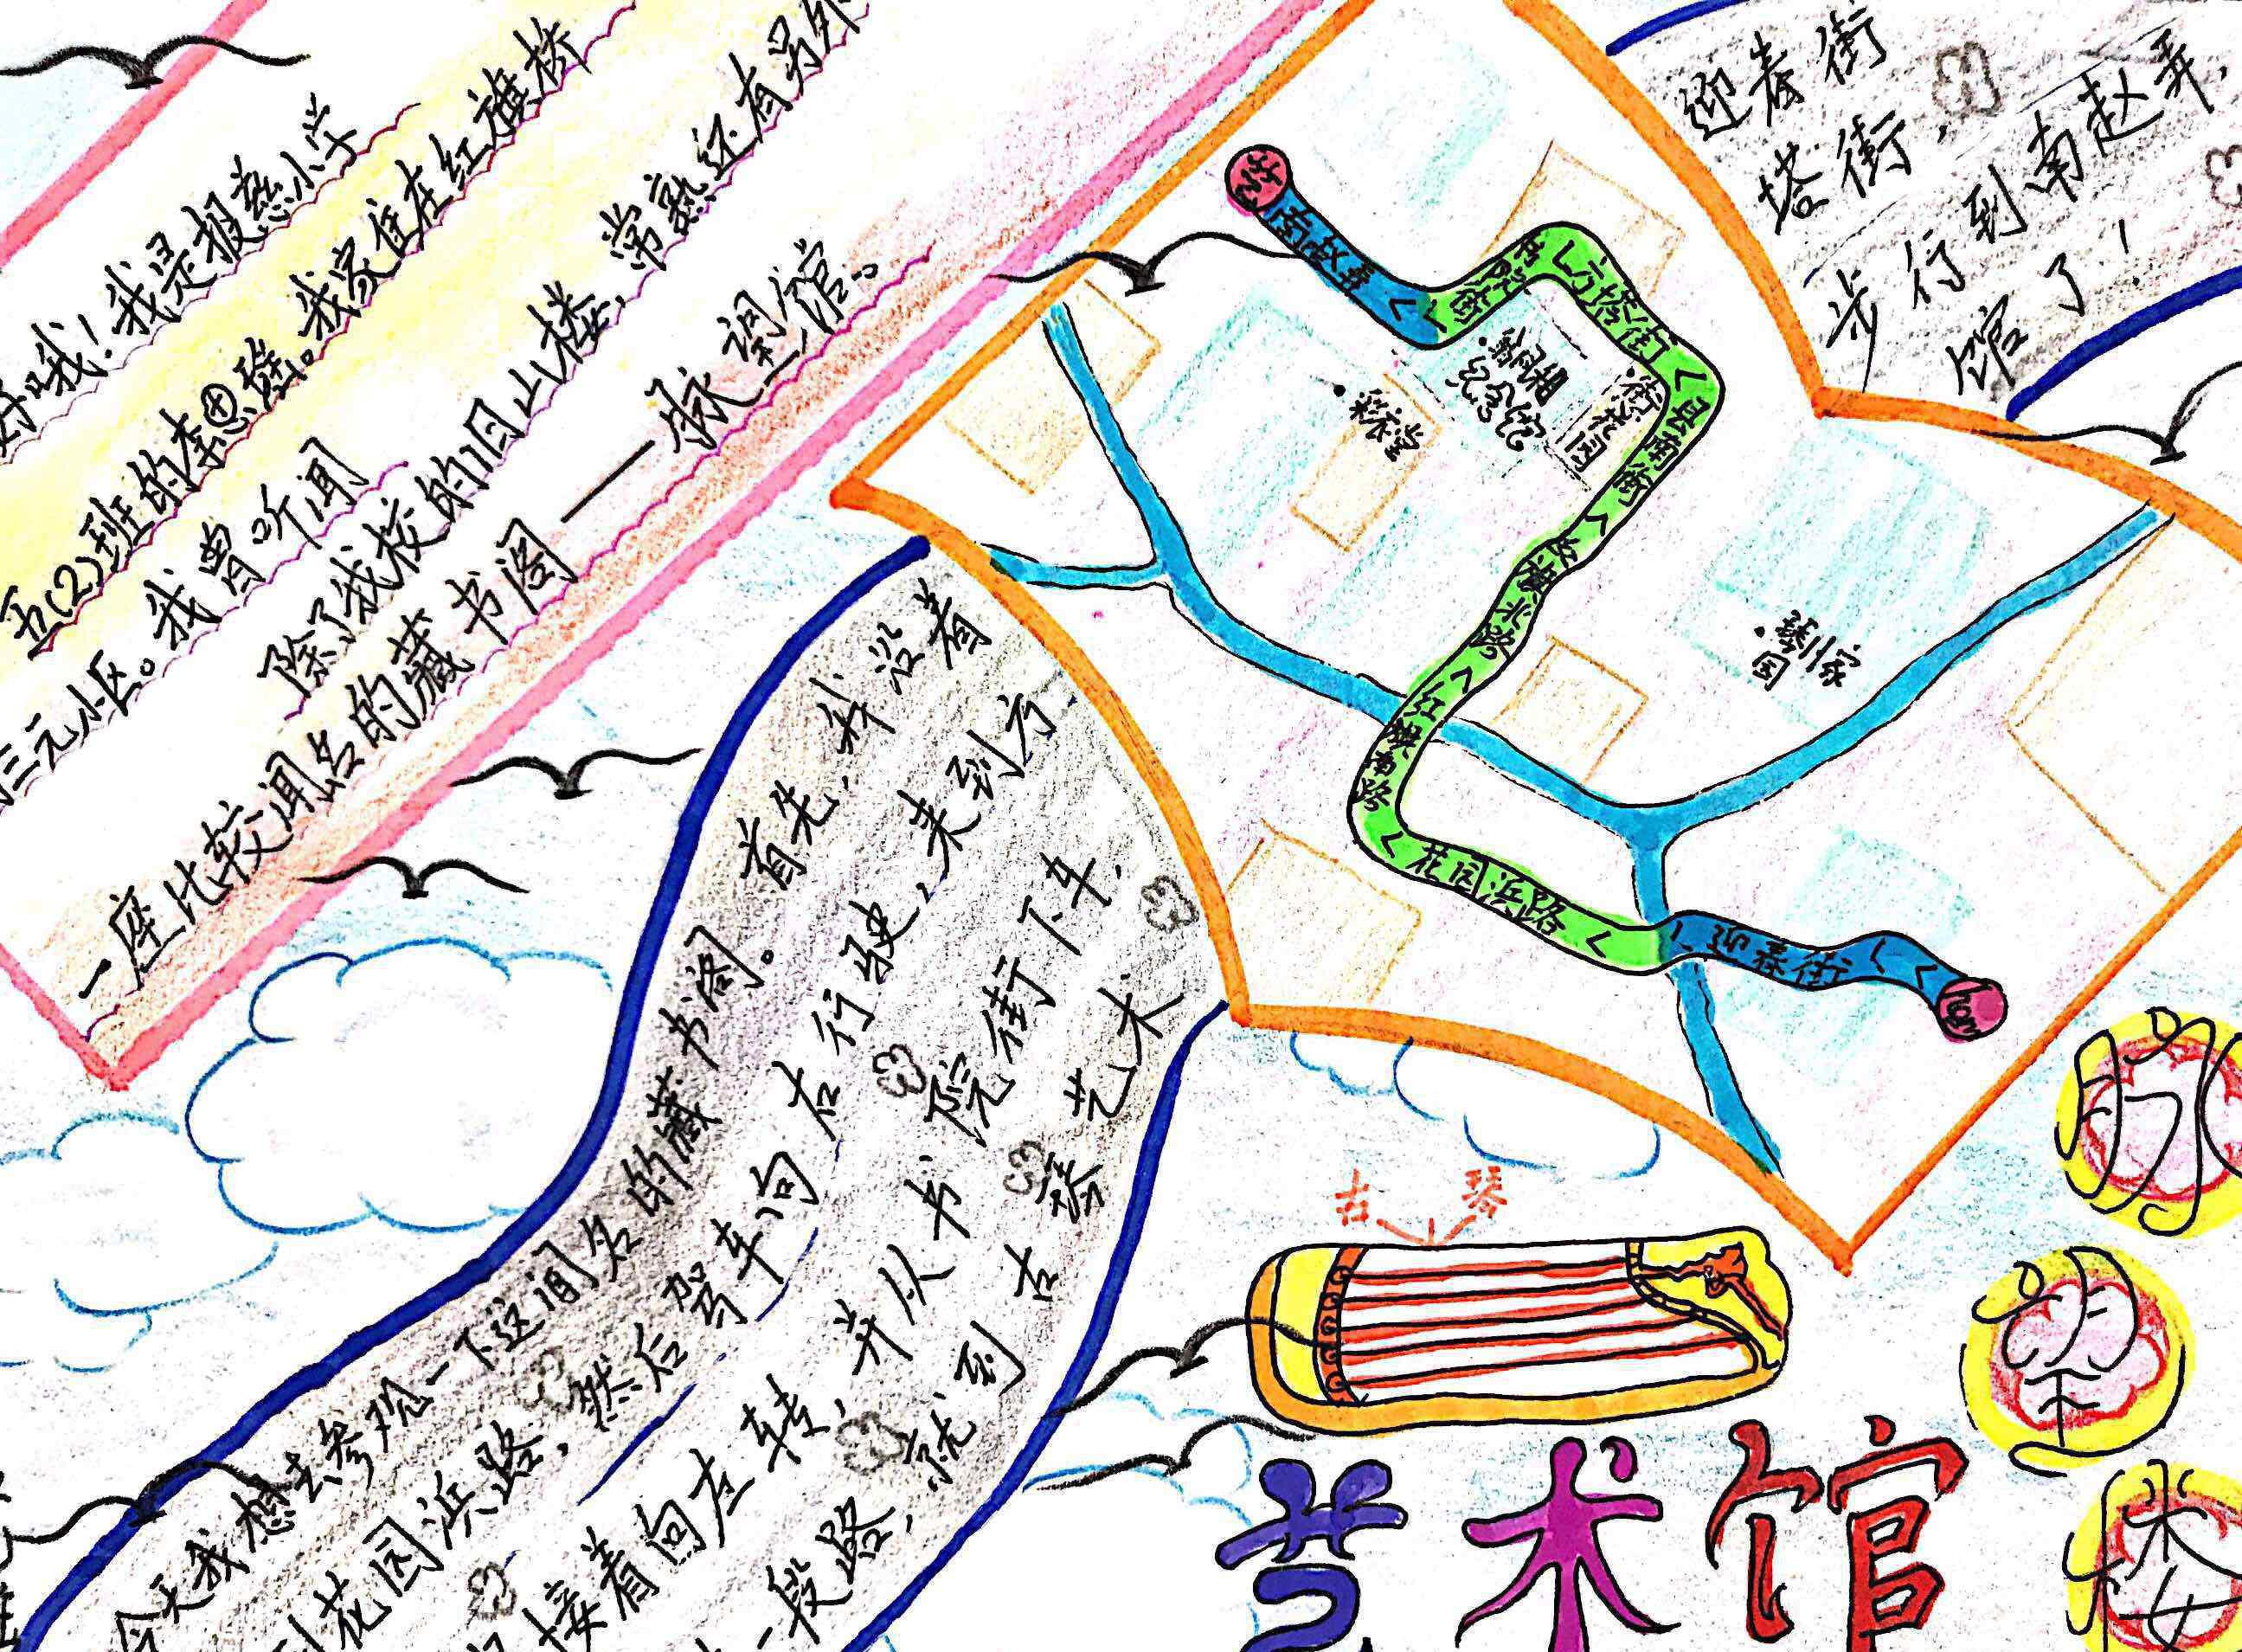 好哦！我是报慈小学
五(2)班的李思
三元小区。我家住在红旗桥
我曾听闻
除了我校的旧山楼，常熟还有另外
一座比较闻名的藏书阁——脉望馆。
今天我想去参观一下这闻名的藏书阁。首先，我沿着
迎春街
到花园浜路，然后驾车向右行驶，来到方
塔街，
接着向左转，并从书院街下车，
步行到南赵弄，
一段路，就到古琴艺术
馆了！
南赵弄
书院街
方塔街
县南街
红旗南路
花园浜路
迎春街
翁同龢
纪念馆
彩衣堂
街花园
琴川家
园
古琴
艺术馆
脉
望
楼